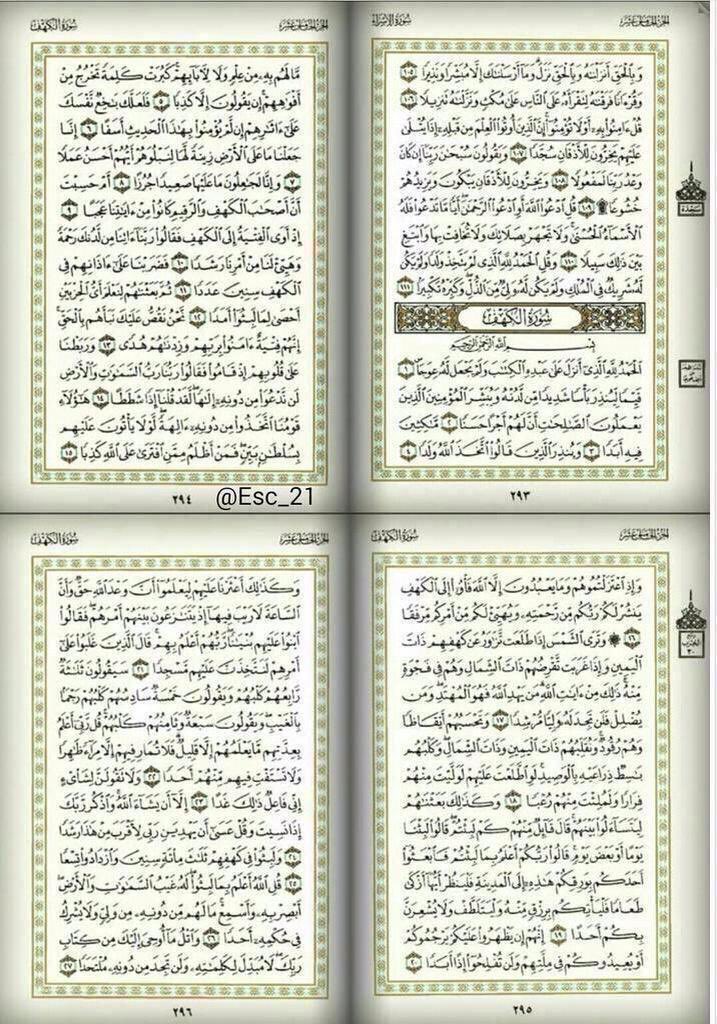 الجزء الخامس عشر
سورة الإسراء
وَبِالْحَقِّ أَنزَلْنَاهُ وَبِالْحَقِّ نَزَلَ وَمَا أَرْسَلْنَاكَ إِلَّا مُبَشِّرًا وَنَذِيرًا ١٠٥
وَقُرْآنًا فَرَقْنَاهُ لِتَقْرَأَهُ عَلَى النَّاسِ عَلَىٰ مُكْثٍ وَنَزَّلْنَاهُ تَنزِيلًا ١٠٦
قُلْ آمِنُوا بِهِ أَوْ لَا تُؤْمِنُوا إِنَّ الَّذِينَ أُوتُوا الْعِلْمَ مِن قَبْلِهِ إِذَا يُتْلَىٰ
عَلَيْهِمْ يَخِرُّونَ لِلْأَذْقَانِ سُجَّدًا ١٠٧ وَيَقُولُونَ سُبْحَانَ رَبِّنَا إِن كَانَ
وَعْدُ رَبِّنَا لَمَفْعُولًا ١٠٨ وَيَخِرُّونَ لِلْأَذْقَانِ يَبْكُونَ وَيَزِيدُهُمْ
خُشُوعًا ۩ ١٠٩ قُلِ ادْعُوا اللَّهَ أَوِ ادْعُوا الرَّحْمَٰنَ أَيًّا مَّا تَدْعُوا فَلَهُ
الْأَسْمَاءُ الْحُسْنَىٰ وَلَا تَجْهَرْ بِصَلَاتِكَ وَلَا تُخَافِتْ بِهَا وَابْتَغِ
بَيْنَ ذَٰلِكَ سَبِيلًا ١١٠ وَقُلِ الْحَمْدُ لِلَّهِ الَّذِي لَمْ يَتَّخِذْ وَلَدًا وَلَمْ يَكُن
لَّهُ شَرِيكٌ فِي الْمُلْكِ وَلَمْ يَكُن لَّهُ وَلِيٌّ مِّنَ الذُّلِّ وَكَبِّرْهُ تَكْبِيرًا ١١١
سورة الكهف
بِسْمِ اللَّهِ الرَّحْمَٰنِ الرَّحِيمِ
الْحَمْدُ لِلَّهِ الَّذِي أَنزَلَ عَلَىٰ عَبْدِهِ الْكِتَابَ وَلَمْ يَجْعَل لَّهُ عِوَجًا ١
قَيِّمًا لِّيُنذِرَ بَأْسًا شَدِيدًا مِّن لَّدُنْهُ وَيُبَشِّرَ الْمُؤْمِنِينَ الَّذِينَ
يَعْمَلُونَ الصَّالِحَاتِ أَنَّ لَهُمْ أَجْرًا حَسَنًا ٢ مَّاكِثِينَ
فِيهِ أَبَدًا ٣ وَيُنذِرَ الَّذِينَ قَالُوا اتَّخَذَ اللَّهُ وَلَدًا ٤
٢٩٣
الجزء الخامس عشر
سورة الكهف
مَّا لَهُم بِهِ مِنْ عِلْمٍ وَلَا لِآبَائِهِمْ كَبُرَتْ كَلِمَةً تَخْرُجُ مِنْ
أَفْوَاهِهِمْ إِن يَقُولُونَ إِلَّا كَذِبًا ٥ فَلَعَلَّكَ بَاخِعٌ نَّفْسَكَ
عَلَىٰ آثَارِهِمْ إِن لَّمْ يُؤْمِنُوا بِهَٰذَا الْحَدِيثِ أَسَفًا ٦ إِنَّا
جَعَلْنَا مَا عَلَى الْأَرْضِ زِينَةً لَّهَا لِنَبْلُوَهُمْ أَيُّهُمْ أَحْسَنُ عَمَلًا
٧ وَإِنَّا لَجَاعِلُونَ مَا عَلَيْهَا صَعِيدًا جُرُزًا ٨ أَمْ حَسِبْتَ
أَنَّ أَصْحَابَ الْكَهْفِ وَالرَّقِيمِ كَانُوا مِنْ آيَاتِنَا عَجَبًا ٩
إِذْ أَوَى الْفِتْيَةُ إِلَى الْكَهْفِ فَقَالُوا رَبَّنَا آتِنَا مِن لَّدُنكَ رَحْمَةً
وَهَيِّئْ لَنَا مِنْ أَمْرِنَا رَشَدًا ١٠ فَضَرَبْنَا عَلَىٰ آذَانِهِمْ فِي
الْكَهْفِ سِنِينَ عَدَدًا ١١ ثُمَّ بَعَثْنَاهُمْ لِنَعْلَمَ أَيُّ الْحِزْبَيْنِ
أَحْصَىٰ لِمَا لَبِثُوا أَمَدًا ١٢ نَّحْنُ نَقُصُّ عَلَيْكَ نَبَأَهُم بِالْحَقِّ
إِنَّهُمْ فِتْيَةٌ آمَنُوا بِرَبِّهِمْ وَزِدْنَاهُمْ هُدًى ١٣ وَرَبَطْنَا
عَلَىٰ قُلُوبِهِمْ إِذْ قَامُوا فَقَالُوا رَبُّنَا رَبُّ السَّمَاوَاتِ وَالْأَرْضِ
لَن نَّدْعُوَ مِن دُونِهِ إِلَٰهًا لَّقَدْ قُلْنَا إِذًا شَطَطًا ١٤ هَٰؤُلَاءِ
قَوْمُنَا اتَّخَذُوا مِن دُونِهِ آلِهَةً لَّوْلَا يَأْتُونَ عَلَيْهِم
بِسُلْطَانٍ بَيِّنٍ فَمَنْ أَظْلَمُ مِمَّنِ افْتَرَىٰ عَلَى اللَّهِ كَذِبًا ١٥
٢٩٤
@Esc_21
الجزء الخامس عشر
سورة الكهف
وَإِذِ اعْتَزَلْتُمُوهُمْ وَمَا يَعْبُدُونَ إِلَّا اللَّهَ فَأْوُوا إِلَى الْكَهْفِ
يَنشُرْ لَكُمْ رَبُّكُم مِّن رَّحْمَتِهِ وَيُهَيِّئْ لَكُم مِّنْ أَمْرِكُم مِّرْفَقًا
١٦ ۞ وَتَرَى الشَّمْسَ إِذَا طَلَعَت تَّزَاوَرُ عَن كَهْفِهِمْ ذَاتَ
الْيَمِينِ وَإِذَا غَرَبَت تَّقْرِضُهُمْ ذَاتَ الشِّمَالِ وَهُمْ فِي فَجْوَةٍ
مِّنْهُ ذَٰلِكَ مِنْ آيَاتِ اللَّهِ مَن يَهْدِ اللَّهُ فَهُوَ الْمُهْتَدِ وَمَن
يُضْلِلْ فَلَن تَجِدَ لَهُ وَلِيًّا مُّرْشِدًا ١٧ وَتَحْسَبُهُمْ أَيْقَاظًا
وَهُمْ رُقُودٌ وَنُقَلِّبُهُمْ ذَاتَ الْيَمِينِ وَذَاتَ الشِّمَالِ وَكَلْبُهُم
بَاسِطٌ ذِرَاعَيْهِ بِالْوَصِيدِ لَوِ اطَّلَعْتَ عَلَيْهِمْ لَوَلَّيْتَ مِنْهُمْ
فِرَارًا وَلَمُلِئْتَ مِنْهُمْ رُعْبًا ١٨ وَكَذَٰلِكَ بَعَثْنَاهُمْ
لِيَتَسَاءَلُوا بَيْنَهُمْ قَالَ قَائِلٌ مِّنْهُمْ كَمْ لَبِثْتُمْ قَالُوا لَبِثْنَا
يَوْمًا أَوْ بَعْضَ يَوْمٍ قَالُوا رَبُّكُمْ أَعْلَمُ بِمَا لَبِثْتُمْ فَابْعَثُوا
أَحَدَكُم بِوَرِقِكُمْ هَٰذِهِ إِلَى الْمَدِينَةِ فَلْيَنظُرْ أَيُّهَا أَزْكَىٰ
طَعَامًا فَلْيَأْتِكُم بِرِزْقٍ مِّنْهُ وَلْيَتَلَطَّفْ وَلَا يُشْعِرَنَّ
بِكُمْ أَحَدًا ١٩ إِنَّهُمْ إِن يَظْهَرُوا عَلَيْكُمْ يَرْجُمُوكُمْ
أَوْ يُعِيدُوكُمْ فِي مِلَّتِهِمْ وَلَن تُفْلِحُوا إِذًا أَبَدًا ٢٠
٢٩٥
الجزء الخامس عشر
سورة الكهف
وَكَذَٰلِكَ أَعْثَرْنَا عَلَيْهِمْ لِيَعْلَمُوا أَنَّ وَعْدَ اللَّهِ حَقٌّ وَأَنَّ
السَّاعَةَ لَا رَيْبَ فِيهَا إِذْ يَتَنَازَعُونَ بَيْنَهُمْ أَمْرَهُمْ فَقَالُوا
ابْنُوا عَلَيْهِم بُنْيَانًا رَّبُّهُمْ أَعْلَمُ بِهِمْ قَالَ الَّذِينَ غَلَبُوا عَلَىٰ
أَمْرِهِمْ لَنَتَّخِذَنَّ عَلَيْهِم مَّسْجِدًا ٢١ سَيَقُولُونَ ثَلَاثَةٌ
رَّابِعُهُمْ كَلْبُهُمْ وَيَقُولُونَ خَمْسَةٌ سَادِسُهُمْ كَلْبُهُمْ رَجْمًا
بِالْغَيْبِ وَيَقُولُونَ سَبْعَةٌ وَثَامِنُهُمْ كَلْبُهُمْ قُل رَّبِّي أَعْلَمُ
بِعِدَّتِهِم مَّا يَعْلَمُهُمْ إِلَّا قَلِيلٌ فَلَا تُمَارِ فِيهِمْ إِلَّا مِرَاءً ظَاهِرًا
وَلَا تَسْتَفْتِ فِيهِم مِّنْهُمْ أَحَدًا ٢٢ وَلَا تَقُولَنَّ لِشَيْءٍ
إِنِّي فَاعِلٌ ذَٰلِكَ غَدًا ٢٣ إِلَّا أَن يَشَاءَ اللَّهُ وَاذْكُر رَّبَّكَ
إِذَا نَسِيتَ وَقُلْ عَسَىٰ أَن يَهْدِيَنِ رَبِّي لِأَقْرَبَ مِنْ هَٰذَا رَشَدًا
٢٤ وَلَبِثُوا فِي كَهْفِهِمْ ثَلَاثَ مِائَةٍ سِنِينَ وَازْدَادُوا تِسْعًا
٢٥ قُلِ اللَّهُ أَعْلَمُ بِمَا لَبِثُوا لَهُ غَيْبُ السَّمَاوَاتِ وَالْأَرْضِ
أَبْصِرْ بِهِ وَأَسْمِعْ مَا لَهُم مِّن دُونِهِ مِن وَلِيٍّ وَلَا يُشْرِكُ
فِي حُكْمِهِ أَحَدًا ٢٦ وَاتْلُ مَا أُوحِيَ إِلَيْكَ مِن كِتَابِ
رَبِّكَ لَا مُبَدِّلَ لِكَلِمَاتِهِ وَلَن تَجِدَ مِن دُونِهِ مُلْتَحَدًا ٢٧
٢٩٦